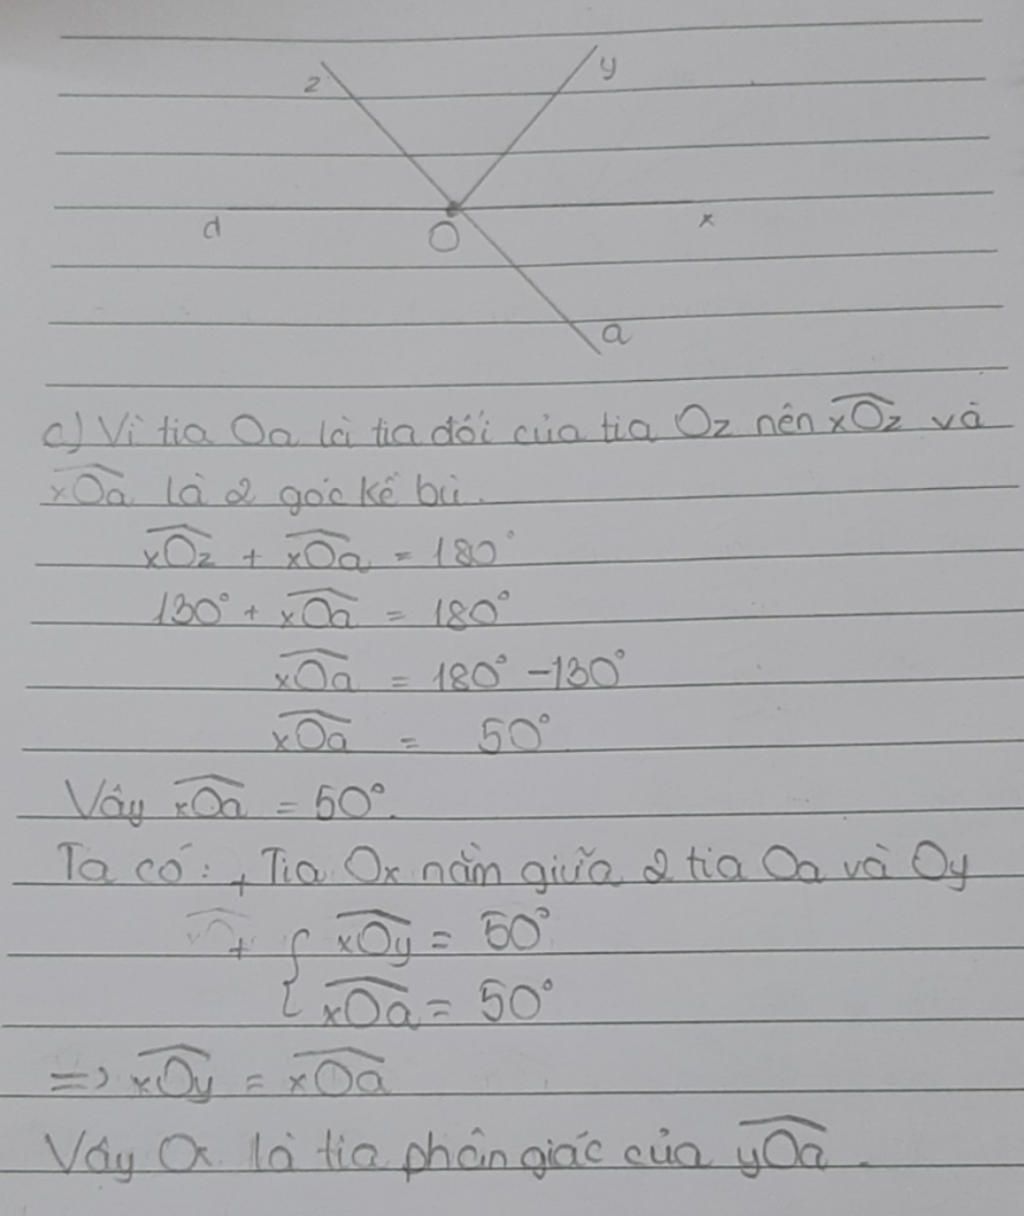 z
y
d
O
x
a
c) Vì tia Oa là tia đối của tia Oz nên xOz và
xOa là 2 góc kề bù.
xOz + xOa = 180°
130° + xOa = 180°
xOa = 180° - 130°
xOa = 50°
Vây xOa = 50°.
Ta có: + Tia Ox nằm giữa 2 tia Oa và Oy
+ { xOy = 50°
xOa = 50°
=> xOy = xOa
Vây Ox là tia phân giác của yOa.